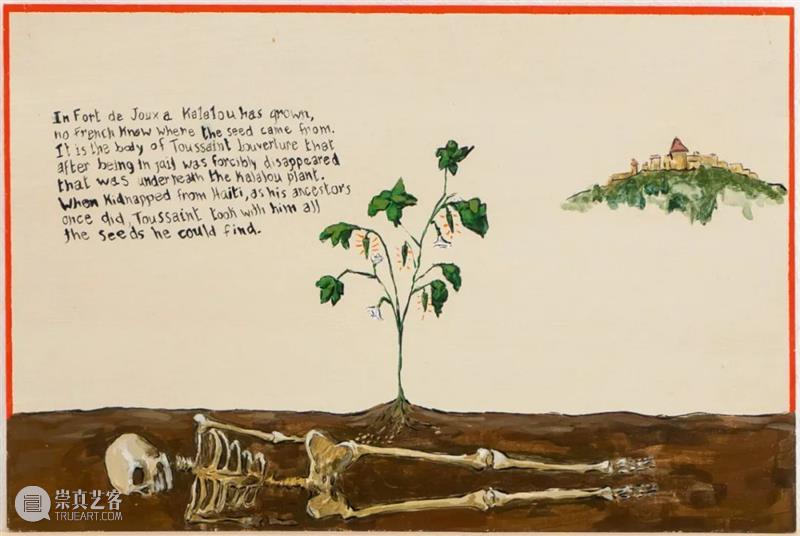 In Fort de Joux a Kalalou has grown,
no French know where the seed came from.
It is the body of Toussaint Louverture that
after being in jail was forcibly disappeared
that was underneath the Kalalou plant.
When Kidnapped from Haiti, as his ancestors
once did, Toussaint took with him all
the seeds he could find.
崇真艺客
TRUEART.COM